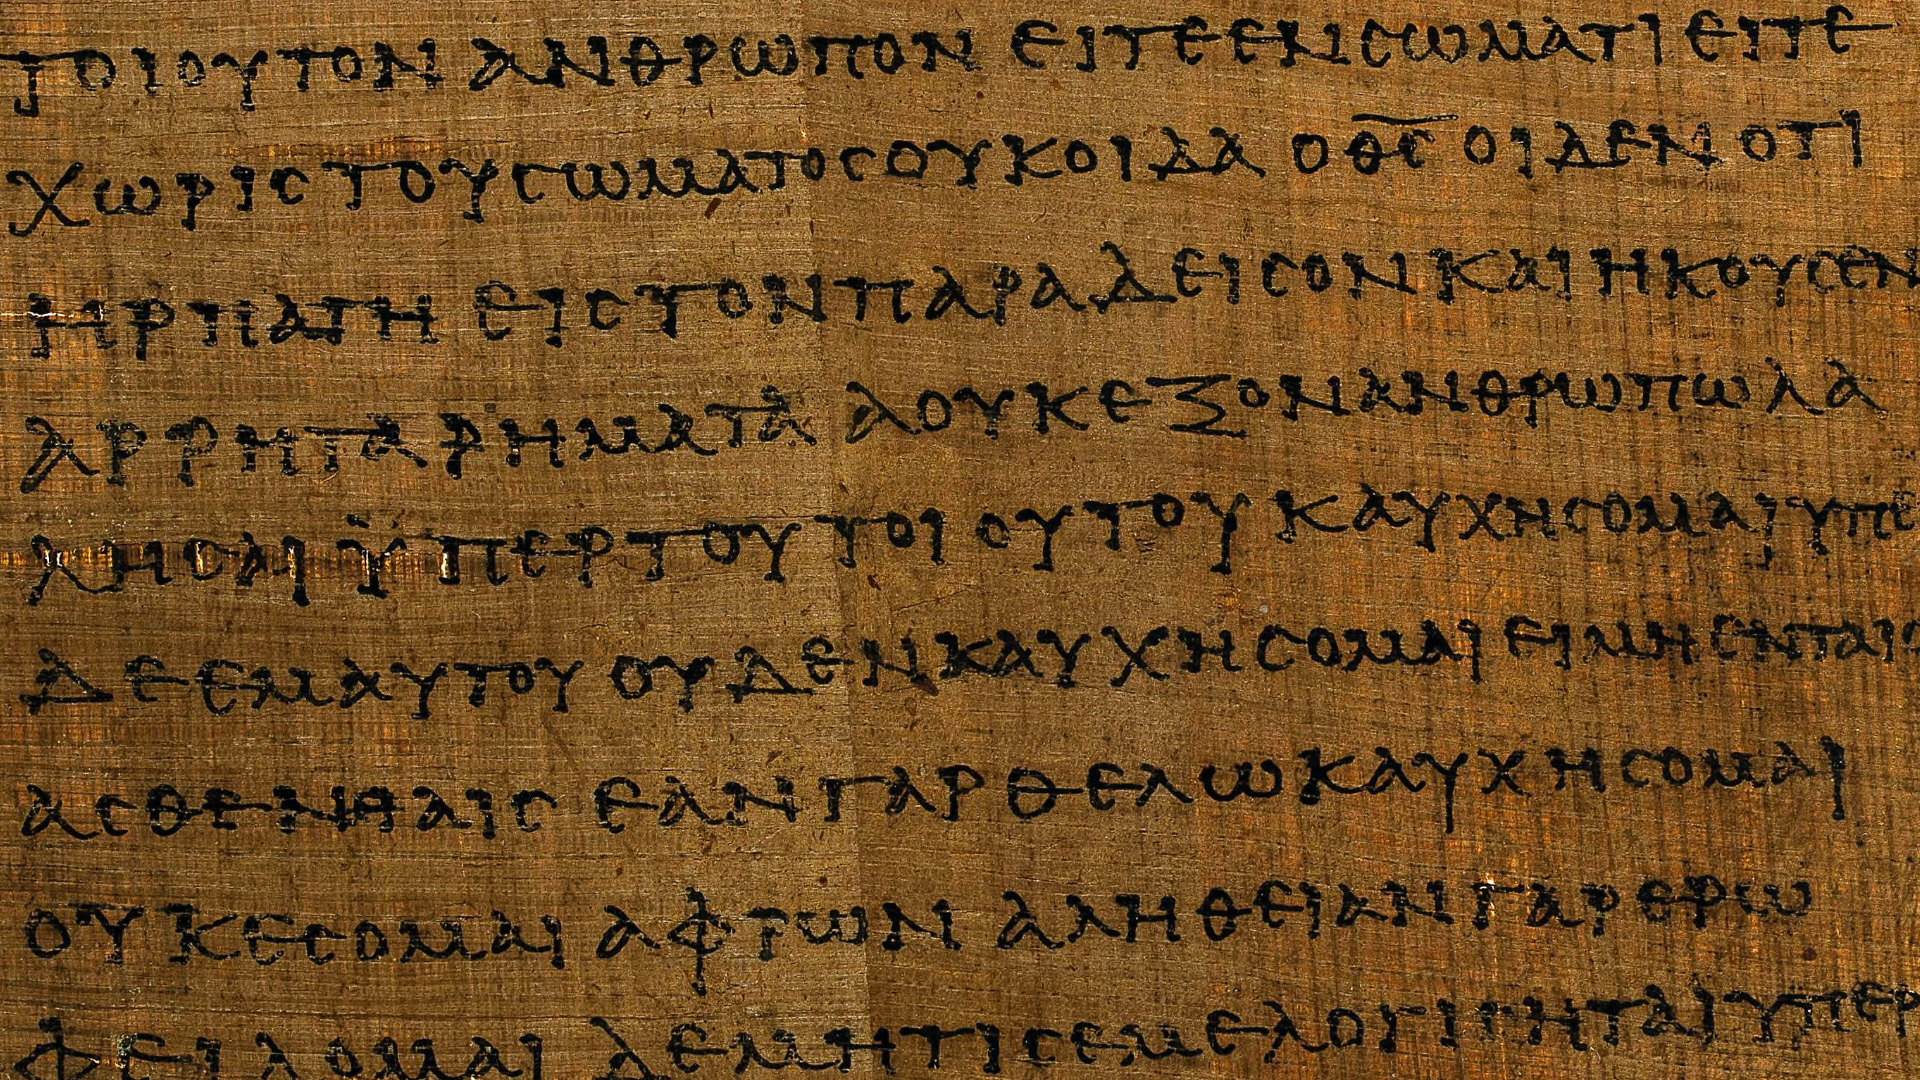 ΤΟΙΟΥΤΟΝ ΑΝΘΡΩΠΟΝ ΕΙΤΕ ΕΝ ΣΩΜΑΤΙ ΕΙΤΕ
ΧΩΡΙϹ ΤΟΥ ϹΩΜΑΤΟϹ ΟΥΚ ΟΙΔΑ Ο Θ̅Ϲ̅ ΟΙΔΕΝ ΟΤΙ
ΗΡΠΑΓΗ ΕΙϹ ΤΟΝ ΠΑΡΑΔΕΙϹΟΝ ΚΑΙ ΗΚΟΥϹΕΝ
ΑΡΡΗΤΑ ΡΗΜΑΤΑ Α ΟΥΚ ΕΞΟΝ ΑΝΘΡΩΠΩ ΛΑ
ΧΗϹΑΙ ΫΠΕΡ ΤΟΥ ΤΟΙΟΥΤΟΥ ΚΑΥΧΗϹΟΜΑΙ ΥΠΕ
ΔΕ ΕΜΑΥΤΟΥ ΟΥΔΕΝ ΚΑΥΧΗϹΟΜΑΙ ΕΙ ΜΗ ΕΝ ΤΑΙϹ
ΑϹΘΕΝΗΑΙϹ ΕΑΝ ΓΑΡ ΘΕΛΩ ΚΑΥΧΗϹΟΜΑΙ
ΟΥΚ ΕϹΟΜΑΙ ΑΦΡΩΝ ΑΛΗΘΕΙΑΝ ΓΑΡ ΕΡΩ
ΦΕΙΛΟΜΑΙ ΔΕ ΜΗ ΤΙϹ ΕΜΕ ΛΟΓΙϹΗΤΑΙ ΥΠΕΡ